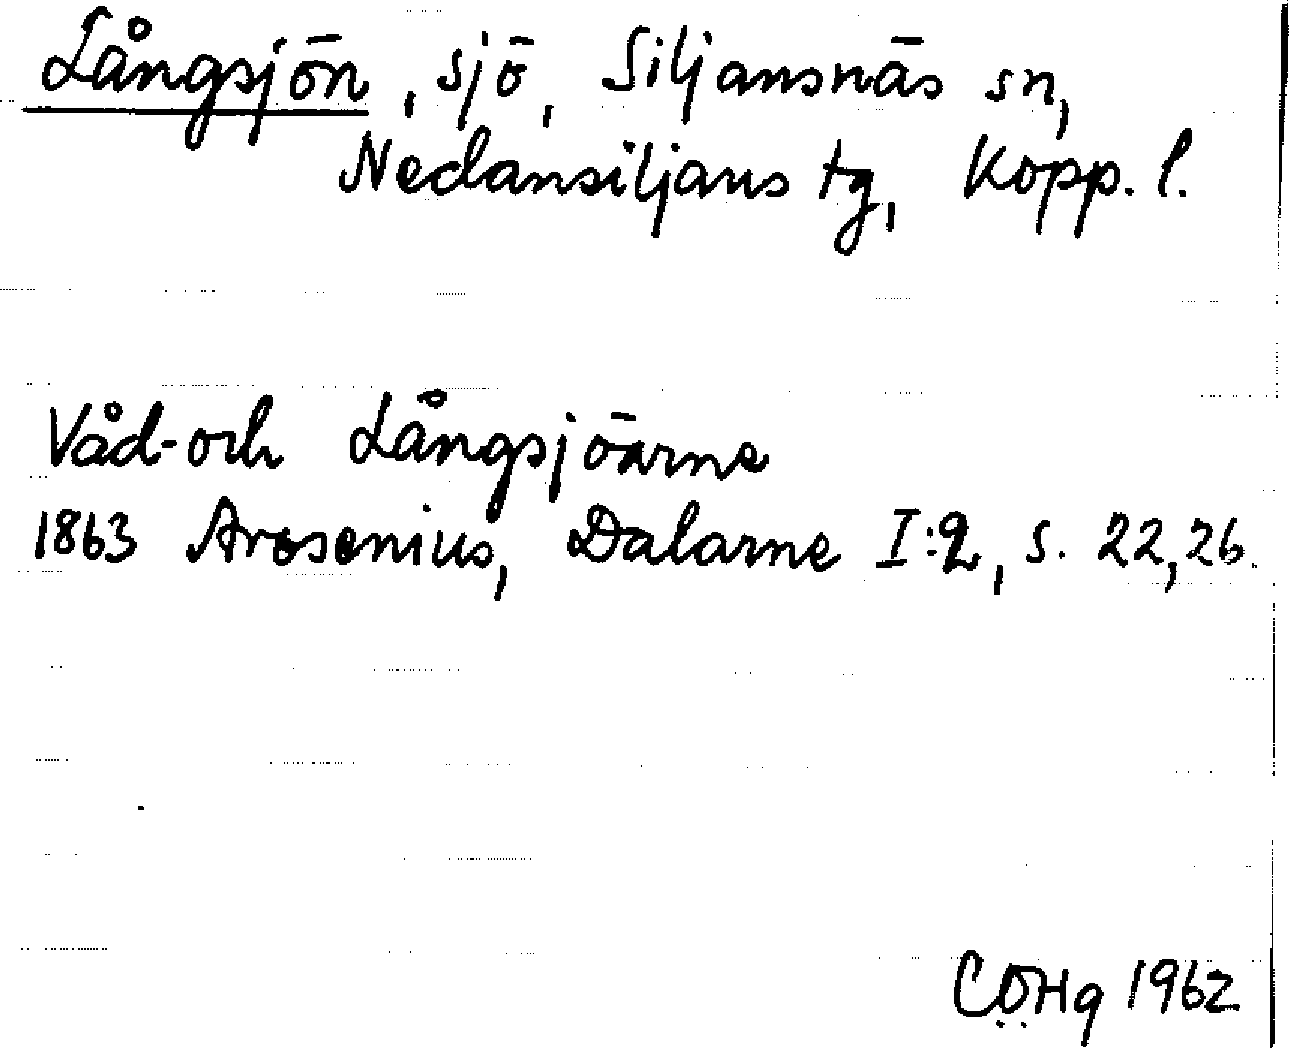 Långsjön, sjö, Siljansnäs sn,
Nedansiljans tg, Kopp. l.
Våd- och Långsjöarne
1863 Arosenius, Dalarne I:2, s. 22,26.
CÖHg 1962